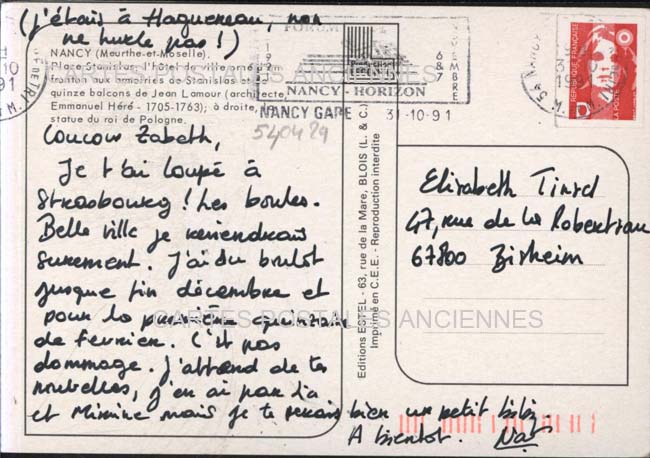 (j'étais à Haguenau, non
ne hurle pas !)
NANCY (Meurthe-et-Moselle).
Place Stanislas, l'hôtel de ville orné
fronton aux armoiries de Stanislas et
quinze balcons de Jean Lamour (architecte,
Emmanuel Héré - 1705-1763); à droite, la
statue du roi de Pologne.
Coucou Zabeth,
Je t'ai loupé à
Strasbourg ! Les boules.
Belle ville je reviendrais
surement. J'ai du boulot
jusque fin décembre et
pour la première quinzaine
de fevrier. C'est pas
dommage. J'attend de tes
nouvelles, j'en ai par
et Mimine mais je te ferais bien un petit
A bientot. Nat
FORUM
6&7
NANCY - HORIZON
NANCY GARE 31-10-91
540429
Editions ESTEL - 63, rue de la Mare, BLOIS (L. & C.)
Imprimé en C.E.E. - Reproduction interdite
54 NANCY
REPUBLIQUE FRANÇAISE
LA POSTE
D
Elisabeth
47, rue de la Robertsau
67800 Bisheim
CARTES POSTALES ANCIENNES
CARTES POSTALES ANCIENNES